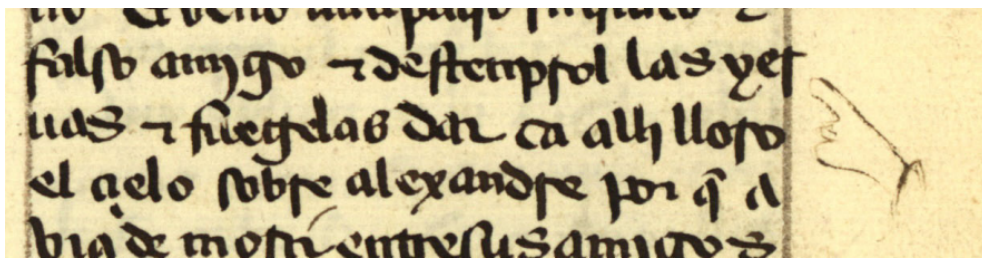 falso amigo ⁊ destenprol las yer
uas ⁊ fuegelas dar ca alli lloro
el çielo sobre alexandre por q̃ a
via de morir entre sus amigos